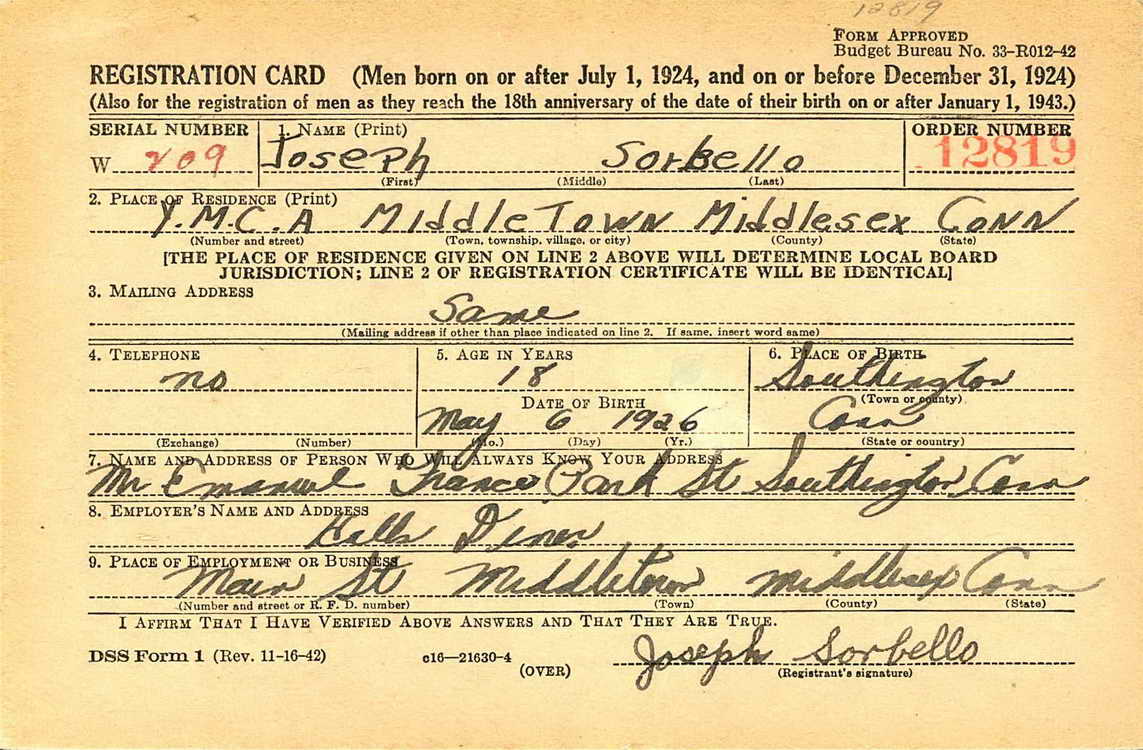 12819
FORM APPROVED
Budget Bureau No. 33-R012-42
REGISTRATION CARD (Men born on or after July 1, 1924, and on or before December 31, 1924)
(Also for the registration of men as they reach the 18th anniversary of the date of their birth on or after January 1, 1943.)
SERIAL NUMBER 1. NAME (Print) ORDER NUMBER
W 209 Joseph Sorbello 12819
(First) (Middle) (Last)
2. PLACE OF RESIDENCE (Print)
Y.M.C.A MiddleTown Middlesex Conn
(Number and street) (Town, township, village, or city) (County) (State)
[THE PLACE OF RESIDENCE GIVEN ON LINE 2 ABOVE WILL DETERMINE LOCAL BOARD
JURISDICTION; LINE 2 OF REGISTRATION CERTIFICATE WILL BE IDENTICAL]
3. MAILING ADDRESS
Same
(Mailing address if other than place indicated on line 2. If same, insert word same)
4. TELEPHONE 5. AGE IN YEARS 6. PLACE OF BIRTH
no 18 Southington
DATE OF BIRTH (Town or county)
May 6 1926 Conn
(Exchange) (Number) (Mo.) (Day) (Yr.) (State or country)
7. NAME AND ADDRESS OF PERSON WHO WILL ALWAYS KNOW YOUR ADDRESS
Mr Emanuel Franco Park St Southington Conn
8. EMPLOYER'S NAME AND ADDRESS
Diner
9. PLACE OF EMPLOYMENT OR BUSINESS
Main St Middletown Middlesex Conn
(Number and street or R. F. D. number) (Town) (County) (State)
I AFFIRM THAT I HAVE VERIFIED ABOVE ANSWERS AND THAT THEY ARE TRUE.
DSS Form 1 (Rev. 11-16-42) c16—21630-4 Joseph Sorbello
(OVER) (Registrant's signature)